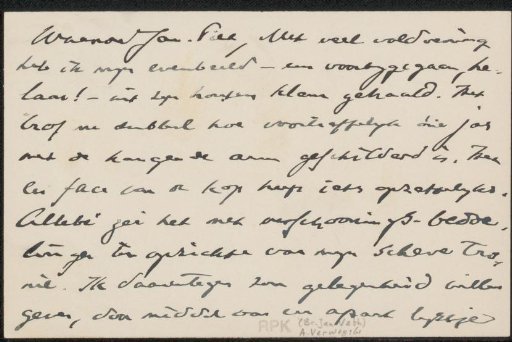 Waarde Jan Piet, Met veel voldoening
heb ik mijn evenbeeld – een voorbijgegaan, he-
laas! – uit zijn houten klem gehaald. Het
trof me dubbel hoe voortreffelijk die jas
met de hangende arm geschilderd is. Het
en face van de kop heeft iets opzettelijks.
Allebé zei het met verschoonings-bedoe-
lingen ten opzichte van mijn scheve tro-
nie. Ik daarentegen zou gelegenheid willen
geven, door middel van een apart lijstje
RPK
A. Verwey